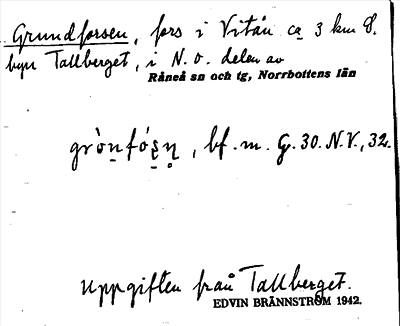 Grundforsen, fors i Vitån ca 3 km ö.
byn Tallberget, i N.O. delen av
Råneå sn och tg, Norrbottens län
grò̱nfó̱ṣn̥, bf. m. G. 30. N.V., 32.
Uppgiften från Tallberget.
EDVIN BRÄNNSTRÖM 1942.